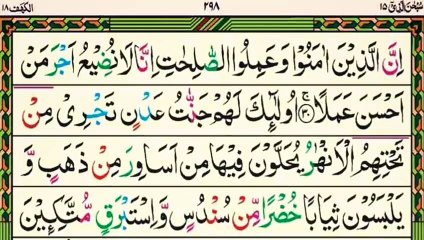 سبحٰن الذی ۱۵ ۲۹۸ الکهف ۱۸
اِنَّ الَّذِیْنَ اٰمَنُوْا وَ عَمِلُوا الصّٰلِحٰتِ اِنَّا لَا نُضِیْعُ اَجْرَ مَنْ
اَحْسَنَ عَمَلًا ۚ﴿۳۰﴾ اُولٰٓئِكَ لَهُمْ جَنّٰتُ عَدْنٍ تَجْرِیْ مِنْ
تَحْتِهِمُ الْاَنْهٰرُ یُحَلَّوْنَ فِیْهَا مِنْ اَسَاوِرَ مِنْ ذَهَبٍ وَّ
یَلْبَسُوْنَ ثِیَابًا خُضْرًا مِّنْ سُنْدُسٍ وَّ اِسْتَبْرَقٍ مُّتَّكِـِٕیْنَ